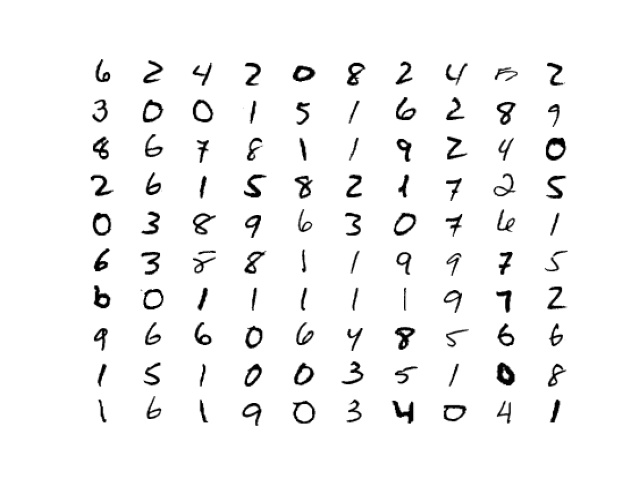 6 2 4 2 0 8 2 4 5 2
3 0 0 1 5 1 6 2 8 9
8 6 7 8 1 1 9 2 4 0
2 6 1 5 8 2 1 7 2 5
0 3 8 9 6 3 0 7 6 1
6 3 8 8 1 1 9 9 7 5
6 0 1 1 1 1 1 9 7 2
9 6 6 0 6 4 8 5 6 6
1 5 1 0 0 3 5 1 0 8
1 6 1 9 0 3 4 0 4 1